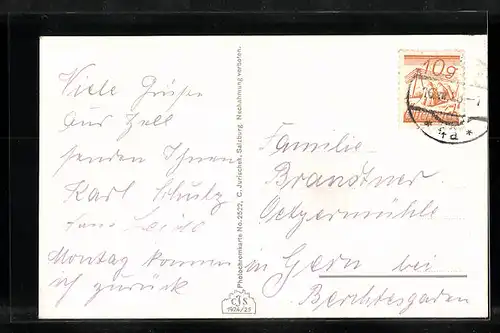 Viele Grüße
aus Zell
senden Ihnen
Karl Schulz
Montag komme
ich zurück
Photochromkarte No. 2522, C. Jurischek, Salzburg. Nachahmung verboten.
CJS
1924/25
10g
Familie
Brandtner
Oetzermühle
in Gern bei
Berchtesgaden